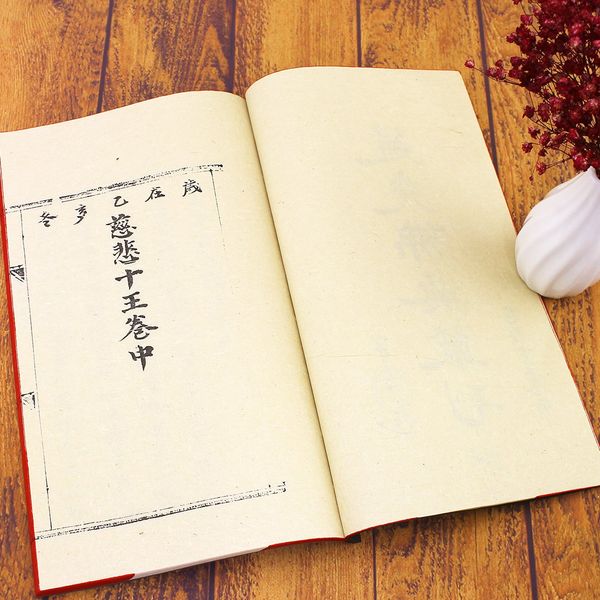 歲在乙亥冬
慈悲十王卷中